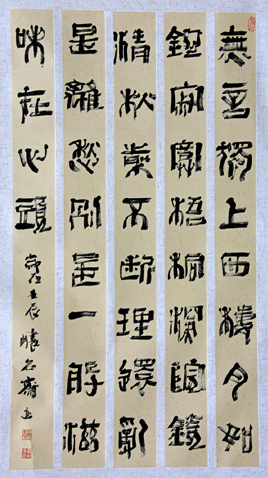 無言獨上西樓月如
鉤寂寞梧桐深院鎖
清秋剪不斷理還亂
是離愁別是一般滋
味在心頭
壬辰